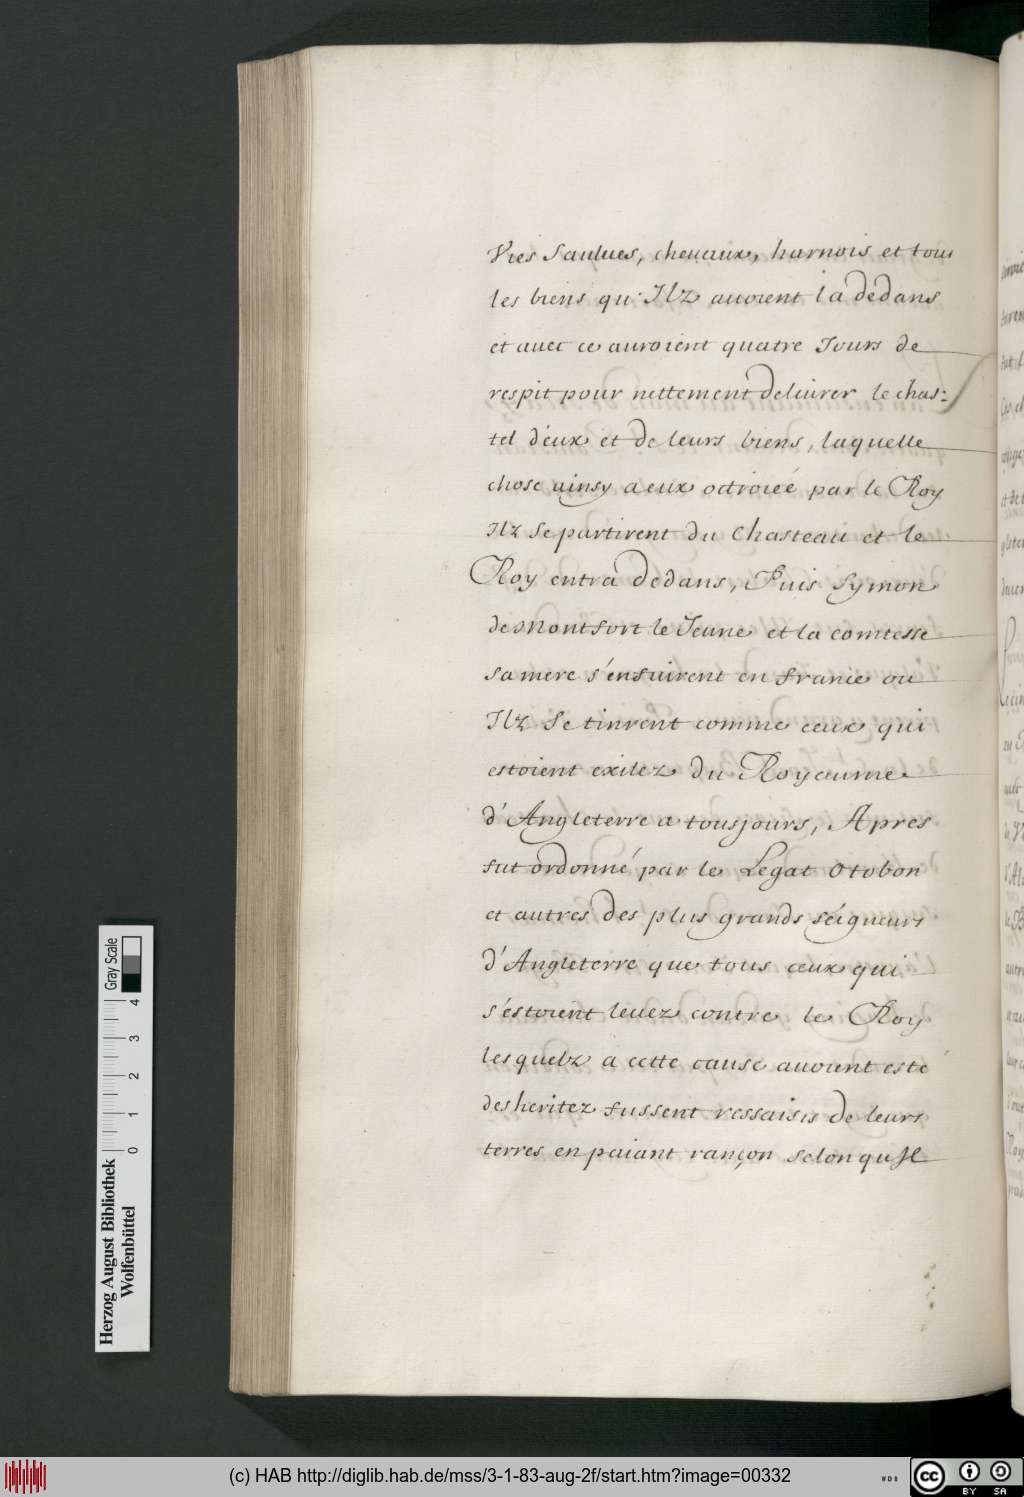 Vies Saulues, cheuaux, harnois et tous
les biens qu'Ilz auoient la dedans
et auec ce auroient quatre Jours de
respit pour nettement deliurer le chas-
tel d'eux et de leurs biens, laquelle
chose ainsy a eux octroieé par le Roy
Ilz se partirent du Chasteau et le
Roy entra dedans, Puis Symon
de Montfort le Jeune et la comtesse
sa mere s'enfuirent en france ou
Ilz se tinrent comme ceux qui
estoient exilez du Royaume
d'Angleterre a tousjours, Apres
fut ordonné par le Legat Otobon
et autres des plus grands seigneurs
d'Angleterre que tous ceux qui
s'estoient leuez contre le Roy
lesquelz a cette cause auoient esté
desheritez fussent ressaisis de leurs
terres en paiant rançon selon qu'Il
Gray Scale
0 1 2 3 4
Herzog August Bibliothek
Wolfenbüttel
(c) HAB http://diglib.hab.de/mss/3-1-83-aug-2f/start.htm?image=00332
WDB
cc BY SA